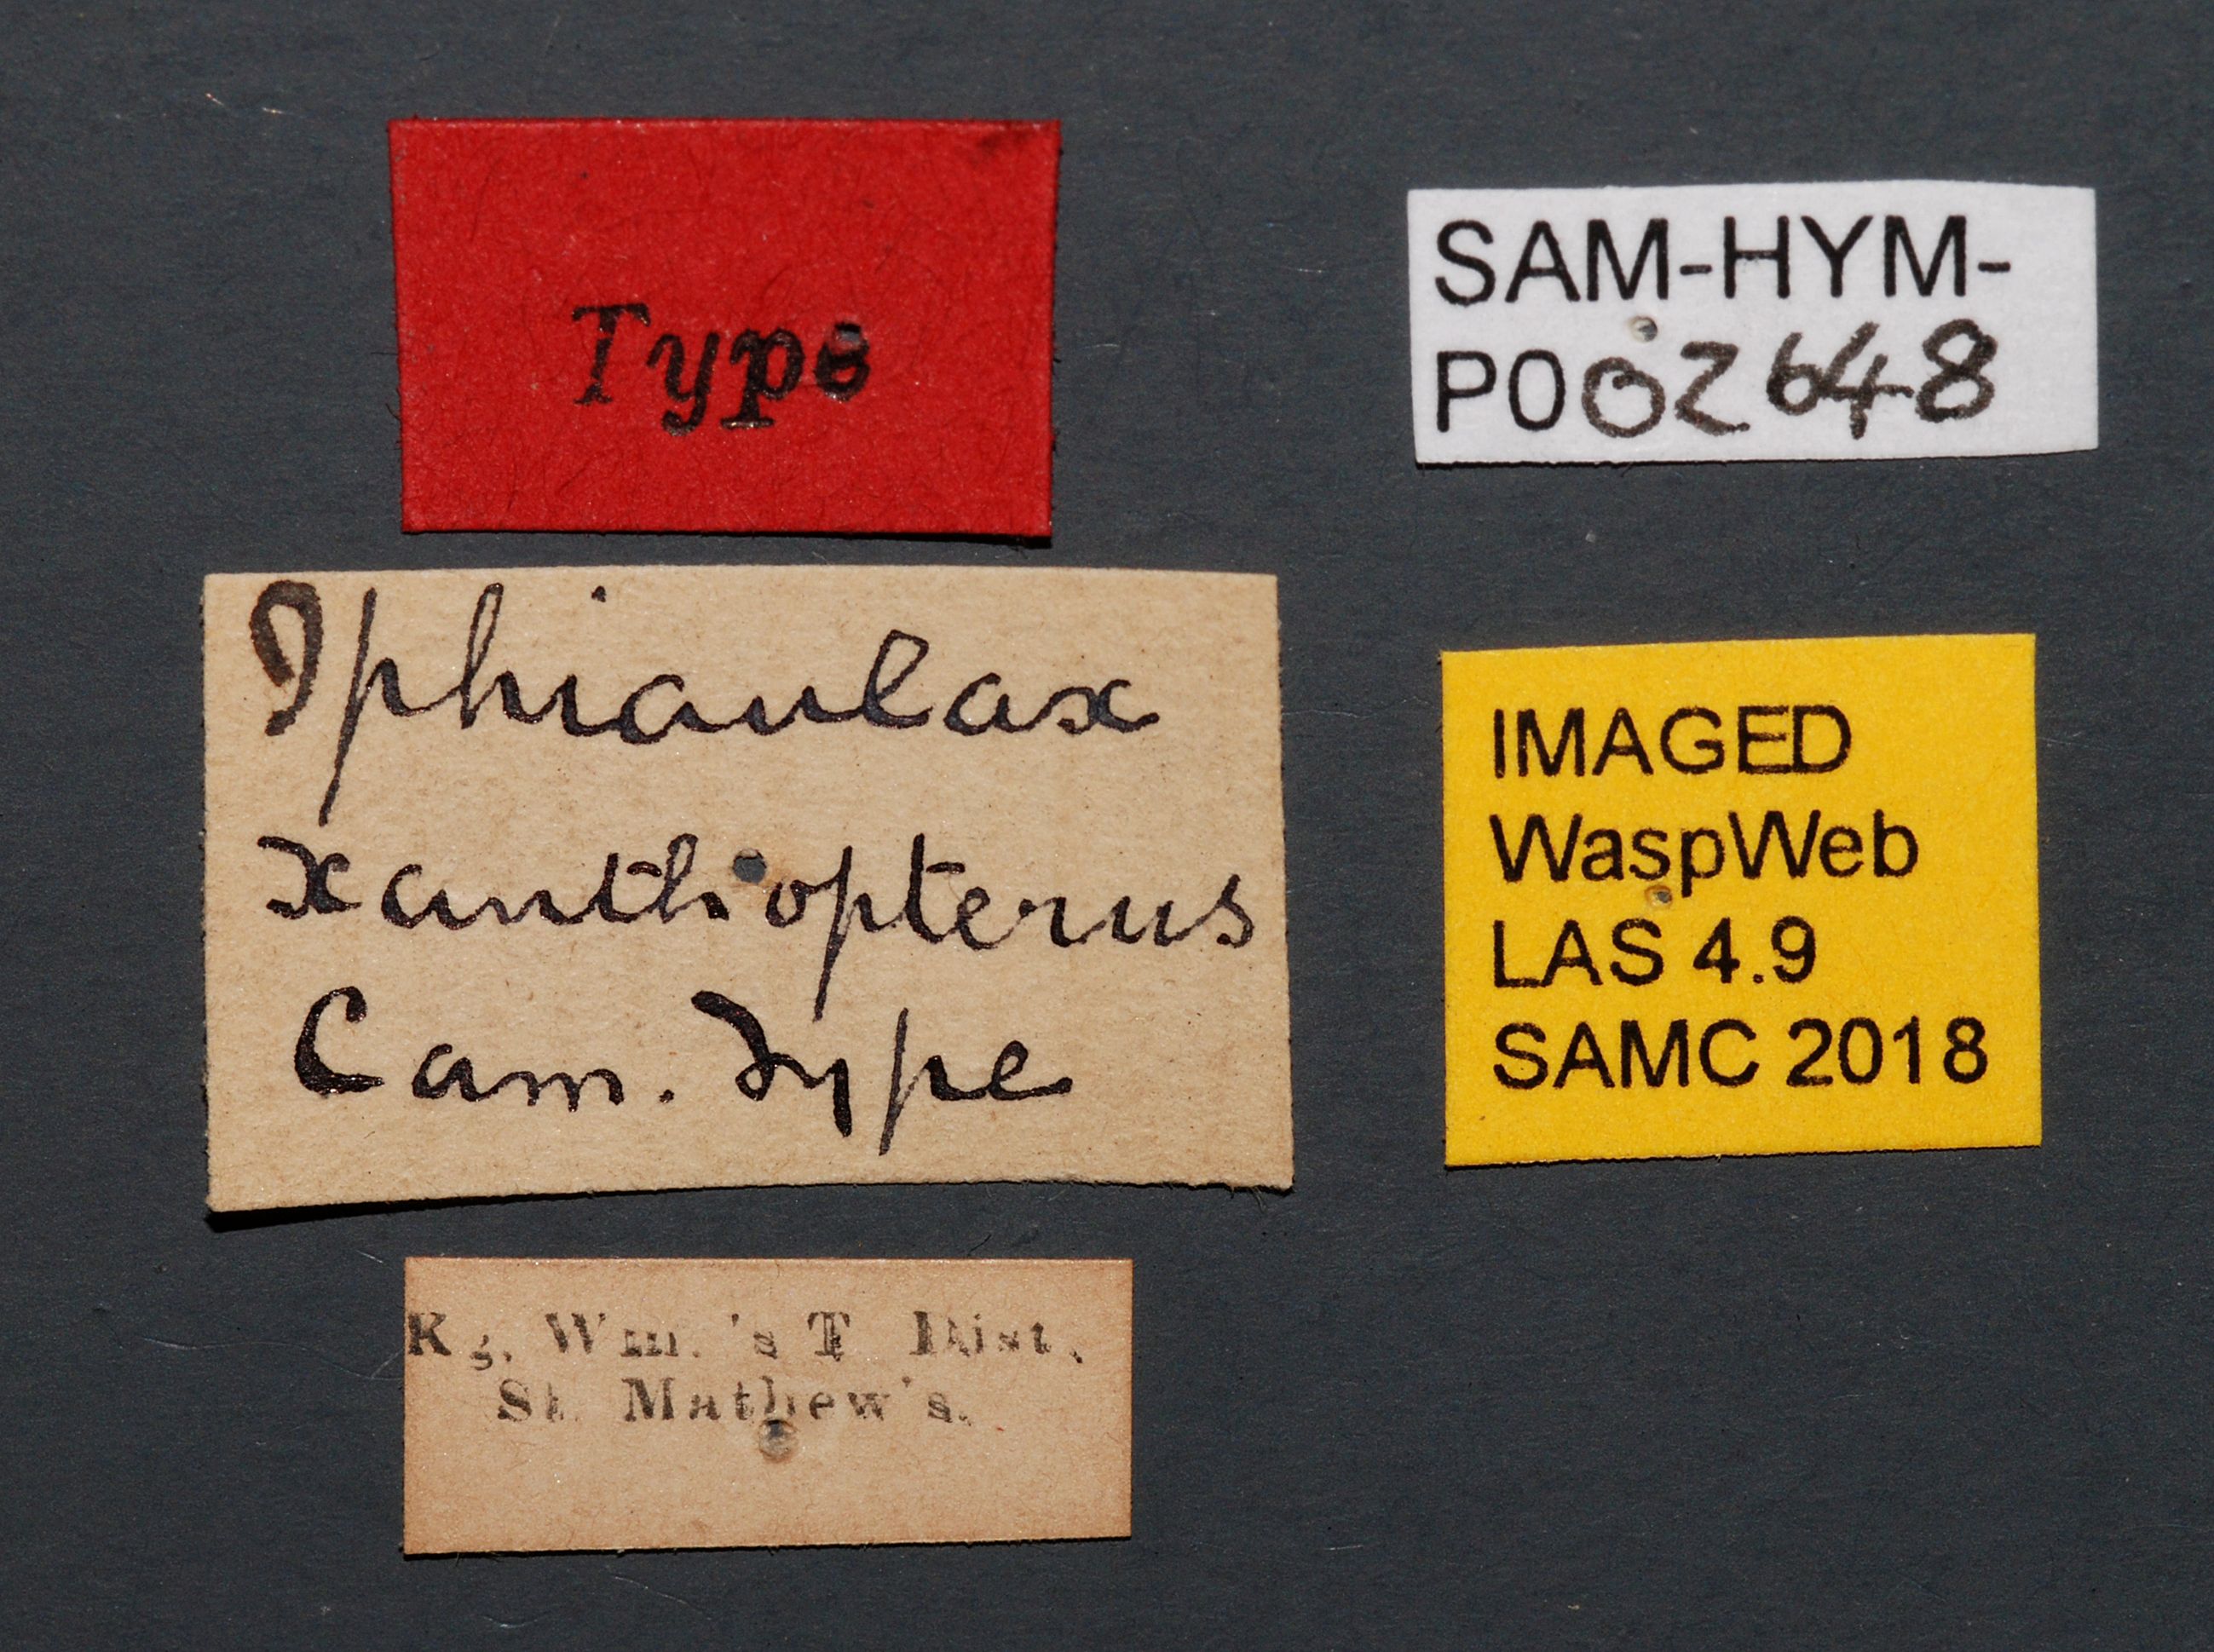 Type
SAM-HYM-
P002648
Iphiaulax
xanthiopterus
Cam. Type
IMAGED
WaspWeb
LAS 4.9
SAMC 2018
Kg. Wm.'s T Dist.
St. Mathew's.